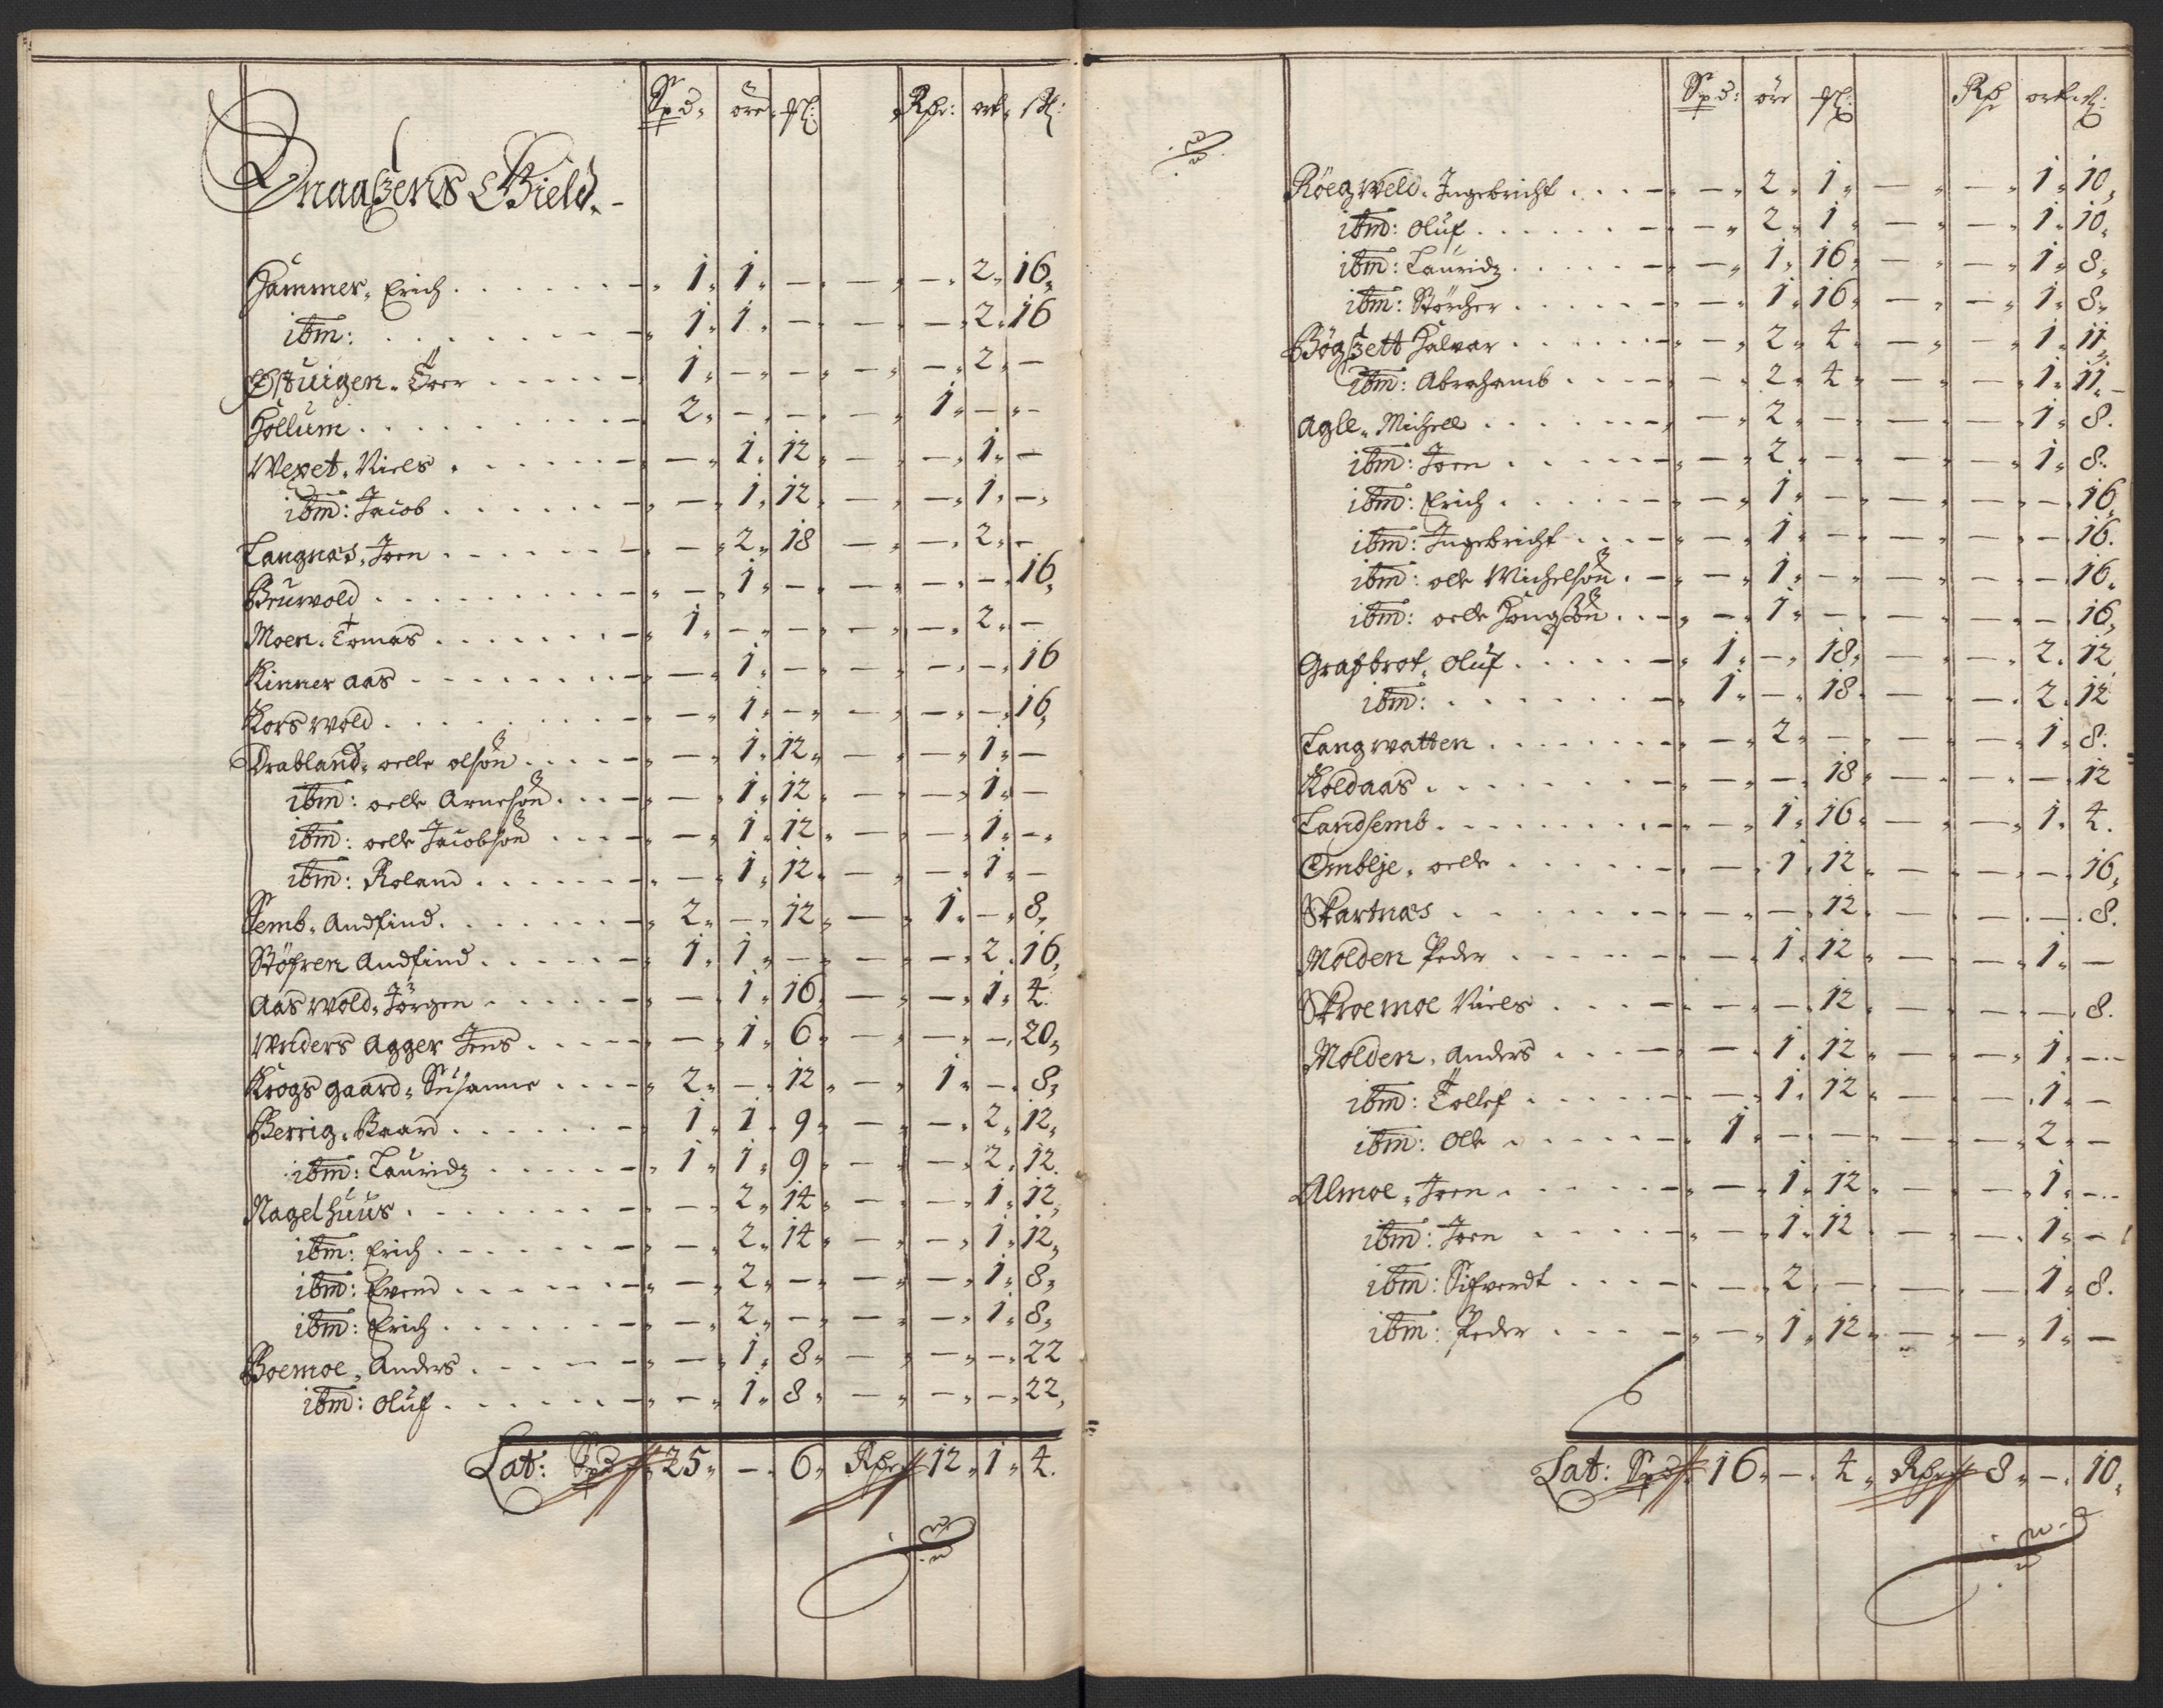 Spd: öre ßl: Rßr: ort ßl:
Snaaßens Gield
Hammer, Erich 1 1 — — 2 16
ibm: 1 1 — — 2 16
Østuigen, Toer 1 — — — 2 —
Hollum 2 — — 1 — —
Wexet, Niels — 1 12 — 1 —
ibm: Jacob — 1 12 — 1 —
Langnæs, Joen — 2 18 — 2 —
Bruwold — 1 — — — 16
Moen, Tomas 1 — — — 2 —
Kinner aas — 1 — — — 16
Kors wold — 1 — — — 16
Drabland, oelle olsøn — 1 12 — 1 —
ibm: oelle Arnesøn — 1 12 — 1 —
ibm: oelle Jacobsøn — 1 12 — 1 —
ibm: Roland — 1 12 — 1 —
Semb, Andfind 2 — 12 1 — 8
Støfren Andfind 1 1 — — 2 16
Aas wold, Jörgen — 1 16 — 1 4
Wnders Agger Jens — 1 6 — — 20
Krogs gaard, Susanne 2 — 12 1 — 8
Berrig, Baard 1 1 9 — 2 12
ibm: Lauridz 1 1 9 — 2 12
Nagelhuus — 2 14 — 1 12
ibm: Erich — 2 14 — 1 12
ibm: Evend — 2 — — 1 8
ibm: Erich — 2 — — 1 8
Boemoe, Anders — 1 8 — — 22
ibm: Oluf — 1 8 — — 22
Lat: Spd 25 — 6 Rßr 12 1 4
Spd: öre ßl: Rßr ort ßl:
Röegweld, Ingebricht — 2 1 — 1 10
ibm: Oluf — 2 1 — 1 10
ibm: Lauridz — 1 16 — 1 8
ibm: Störcher — 1 16 — 1 8
Bögßett Halvar — 2 4 — 1 11
ibm: Abrahamb — 2 4 — 1 11
Agle, Michell — 2 — — 1 8
ibm: Joen — 2 — — 1 8
ibm: Erich — 1 — — — 16
ibm: Ingebricht — 1 — — — 16
ibm: olle Michelsøn — 1 — — — 16
ibm: oelle Hongsøn — 1 — — — 16
Grafbrot, Oluf 1 — 18 — 2 12
ibm: 1 — 18 — 2 12
Langwatten — 2 — — 1 8
Koldaas — — 18 — — 12
Landsemb — 1 16 — 1 4
Emblje, oelle — 1 12 — — 16
Skartnæs — — 12 — — 8
Molden Peder — 1 12 — 1 —
Skroemoe Niels — — 12 — — 8
Molden, Anders — 1 12 — 1 —
ibm: Tollef — 1 12 — 1 —
ibm: Olle 1 — — — 2 —
Almoe, Joen — 1 12 — 1 —
ibm: Joen — 1 12 — 1 —
ibm: Sifverdt — 2 — — 1 8
ibm: Peder — 1 12 — 1 —
Lat: Spd 16 — 4 Rßr 8 — 10